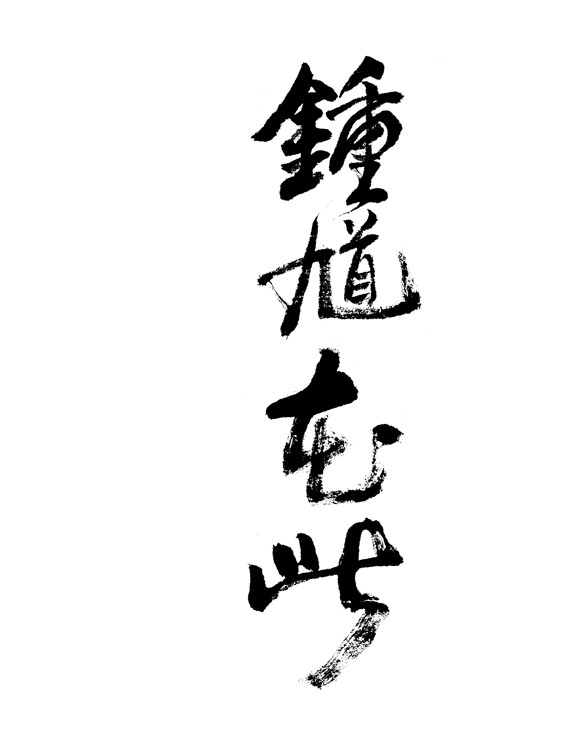 鍾馗在此